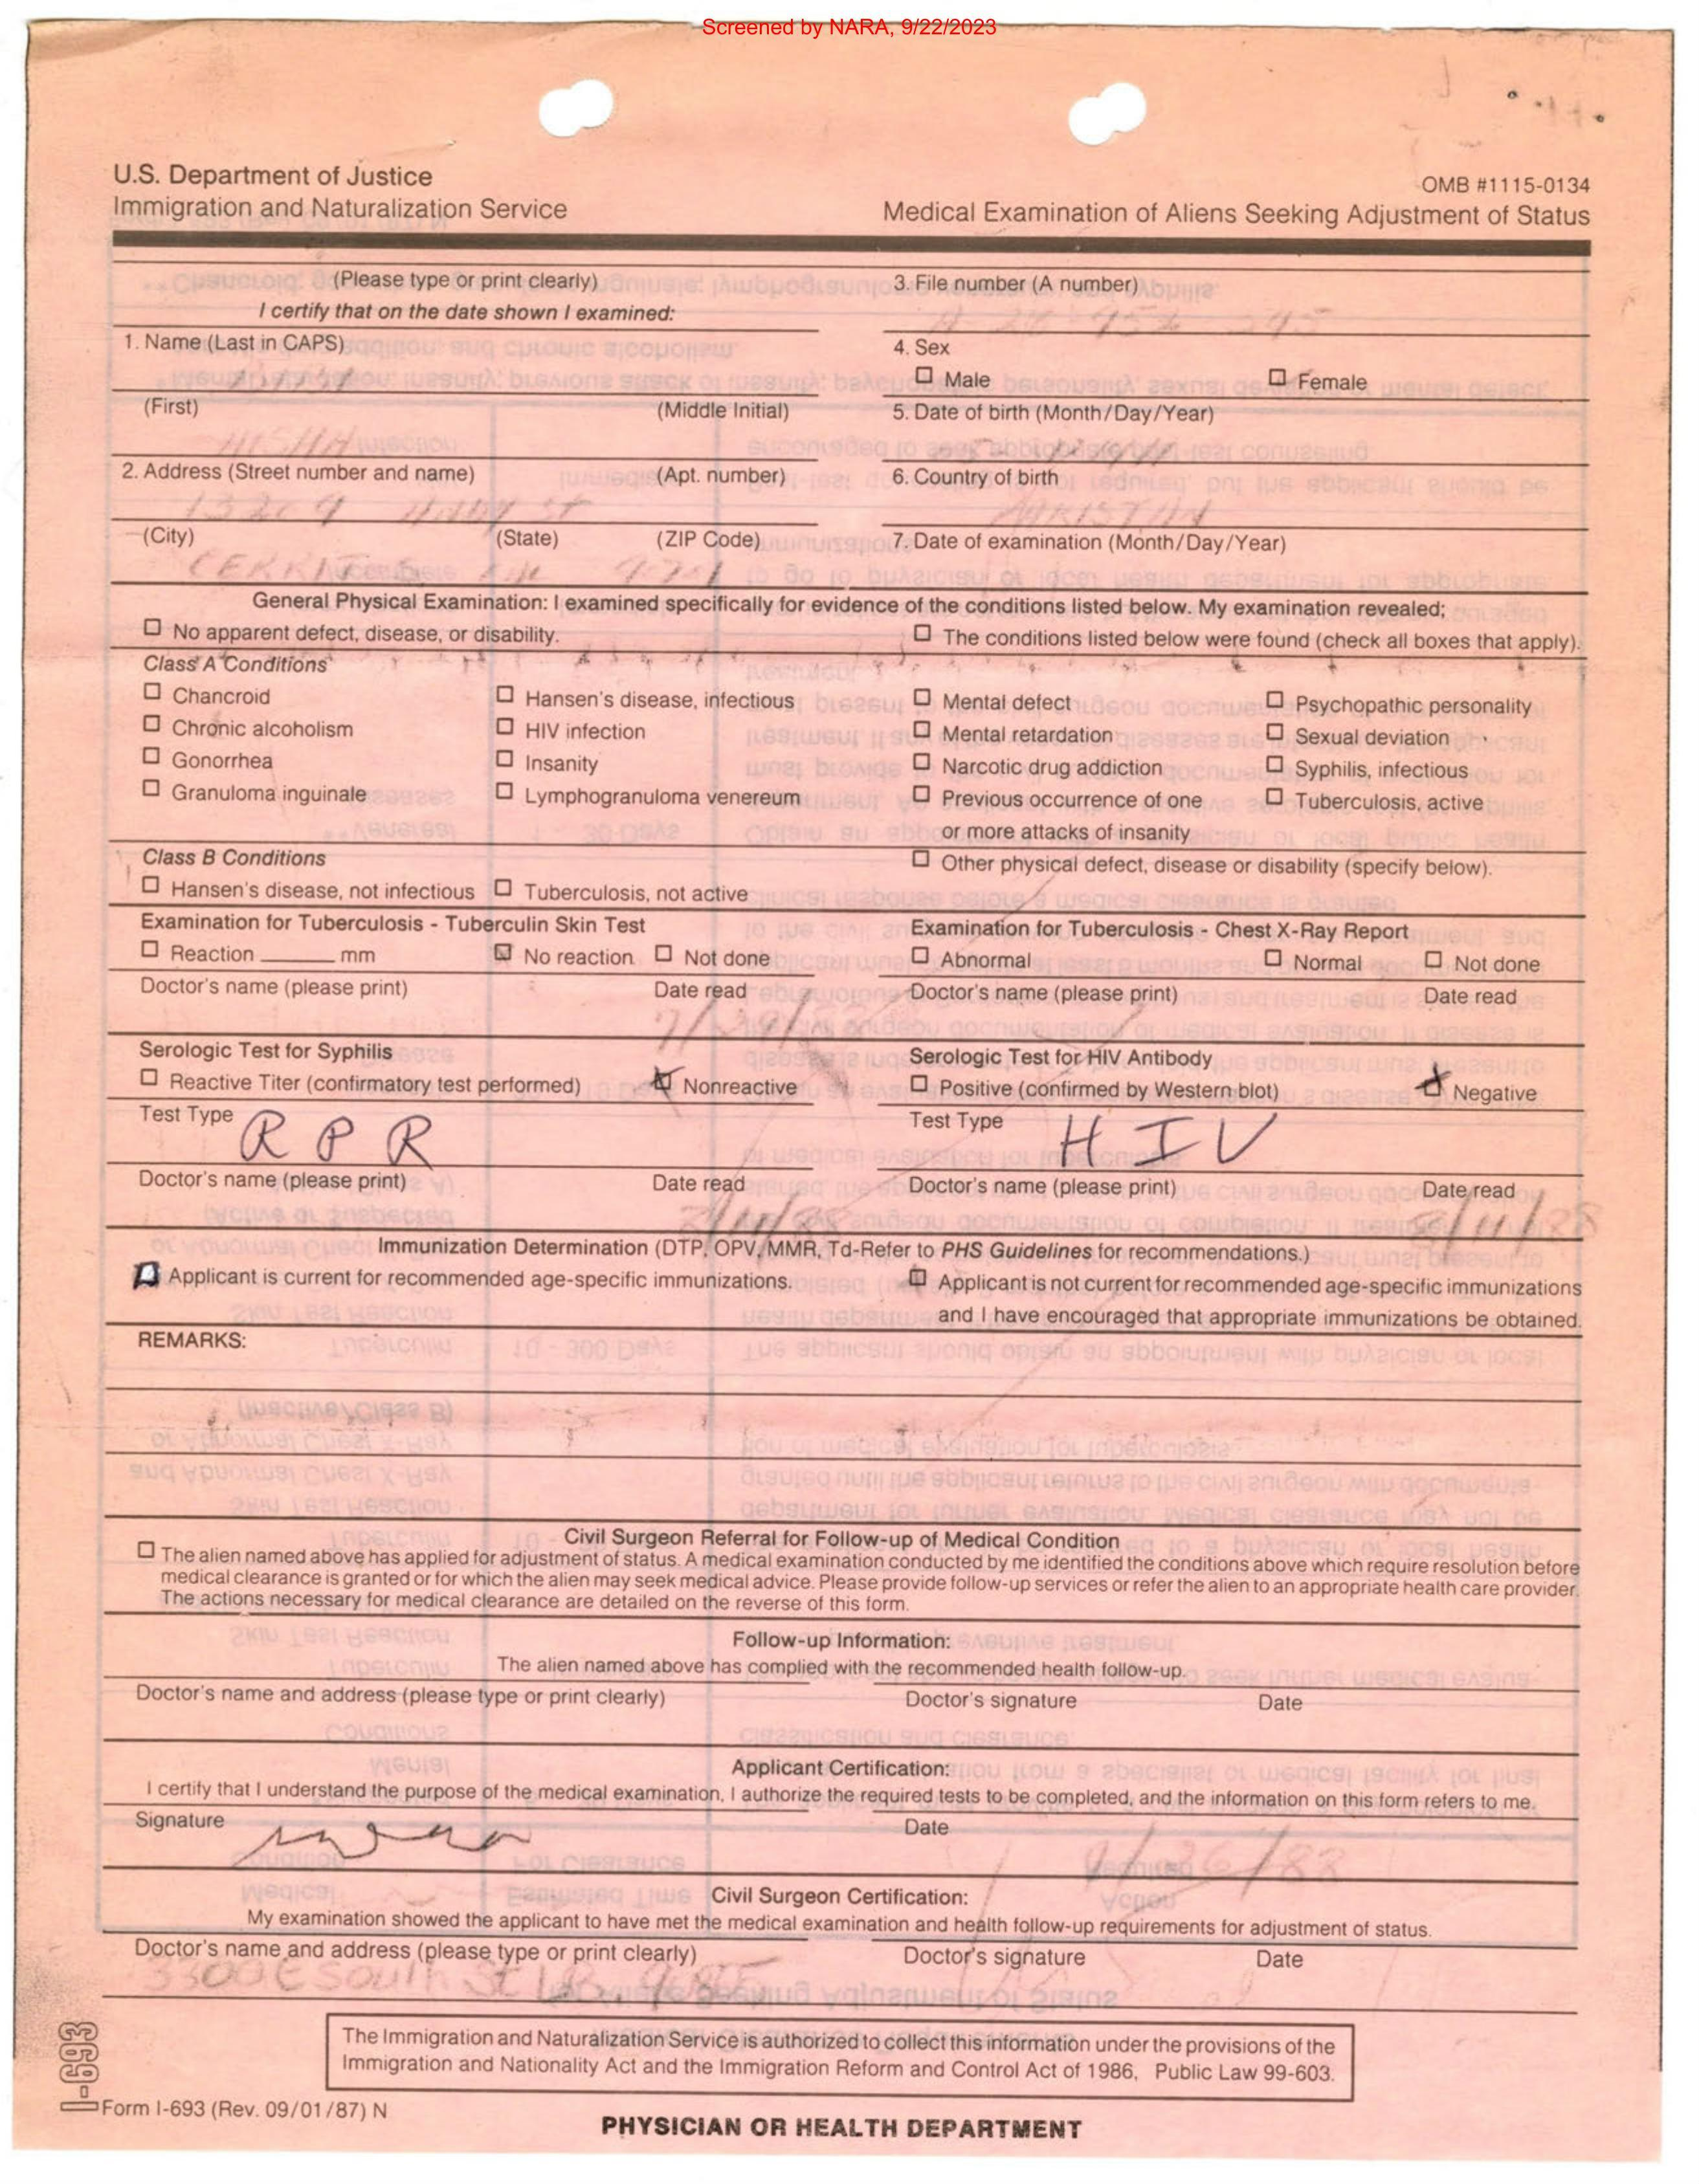 Screened by NARA, 9/22/2023
U.S. Department of Justice
Immigration and Naturalization Service
OMB #1115-0134
Medical Examination of Aliens Seeking Adjustment of Status
(Please type or print clearly)
I certify that on the date shown I examined:
3. File number (A number)
1. Name (Last in CAPS)
4. Sex
Male
Female
(First) (Middle Initial)
5. Date of birth (Month/Day/Year)
2. Address (Street number and name) (Apt. number)
6. Country of birth
(City) (State) (ZIP Code)
7. Date of examination (Month/Day/Year)
General Physical Examination: I examined specifically for evidence of the conditions listed below. My examination revealed;
No apparent defect, disease, or disability.
The conditions listed below were found (check all boxes that apply).
Class A Conditions
Chancroid Hansen's disease, infectious Mental defect Psychopathic personality
Chronic alcoholism HIV infection Mental retardation Sexual deviation
Gonorrhea Insanity Narcotic drug addiction Syphilis, infectious
Granuloma inguinale Lymphogranuloma venereum Previous occurrence of one Tuberculosis, active
or more attacks of insanity
Class B Conditions
Other physical defect, disease or disability (specify below).
Hansen's disease, not infectious Tuberculosis, not active
Examination for Tuberculosis - Tuberculin Skin Test
Examination for Tuberculosis - Chest X-Ray Report
Reaction mm No reaction Not done
Abnormal Normal Not done
Doctor's name (please print) Date read
Doctor's name (please print) Date read
Serologic Test for Syphilis
Serologic Test for HIV Antibody
Reactive Titer (confirmatory test performed) Nonreactive
Positive (confirmed by Western blot) Negative
Test Type RPR
Test Type HIV
Doctor's name (please print) Date read
Doctor's name (please print) Date read
8/11/88
Immunization Determination (DTP, OPV, MMR, Td-Refer to PHS Guidelines for recommendations.)
Applicant is current for recommended age-specific immunizations.
Applicant is not current for recommended age-specific immunizations
and I have encouraged that appropriate immunizations be obtained.
REMARKS:
Civil Surgeon Referral for Follow-up of Medical Condition
The alien named above has applied for adjustment of status. A medical examination conducted by me identified the conditions above which require resolution before
medical clearance is granted or for which the alien may seek medical advice. Please provide follow-up services or refer the alien to an appropriate health care provider.
The actions necessary for medical clearance are detailed on the reverse of this form.
Follow-up Information:
The alien named above has complied with the recommended health follow-up.
Doctor's name and address (please type or print clearly) Doctor's signature Date
Applicant Certification:
I certify that I understand the purpose of the medical examination, I authorize the required tests to be completed, and the information on this form refers to me.
Signature Date
Civil Surgeon Certification:
My examination showed the applicant to have met the medical examination and health follow-up requirements for adjustment of status.
Doctor's name and address (please type or print clearly) Doctor's signature Date
3300 E South St
The Immigration and Naturalization Service is authorized to collect this information under the provisions of the
Immigration and Nationality Act and the Immigration Reform and Control Act of 1986, Public Law 99-603.
I-693
Form I-693 (Rev. 09/01/87) N
PHYSICIAN OR HEALTH DEPARTMENT